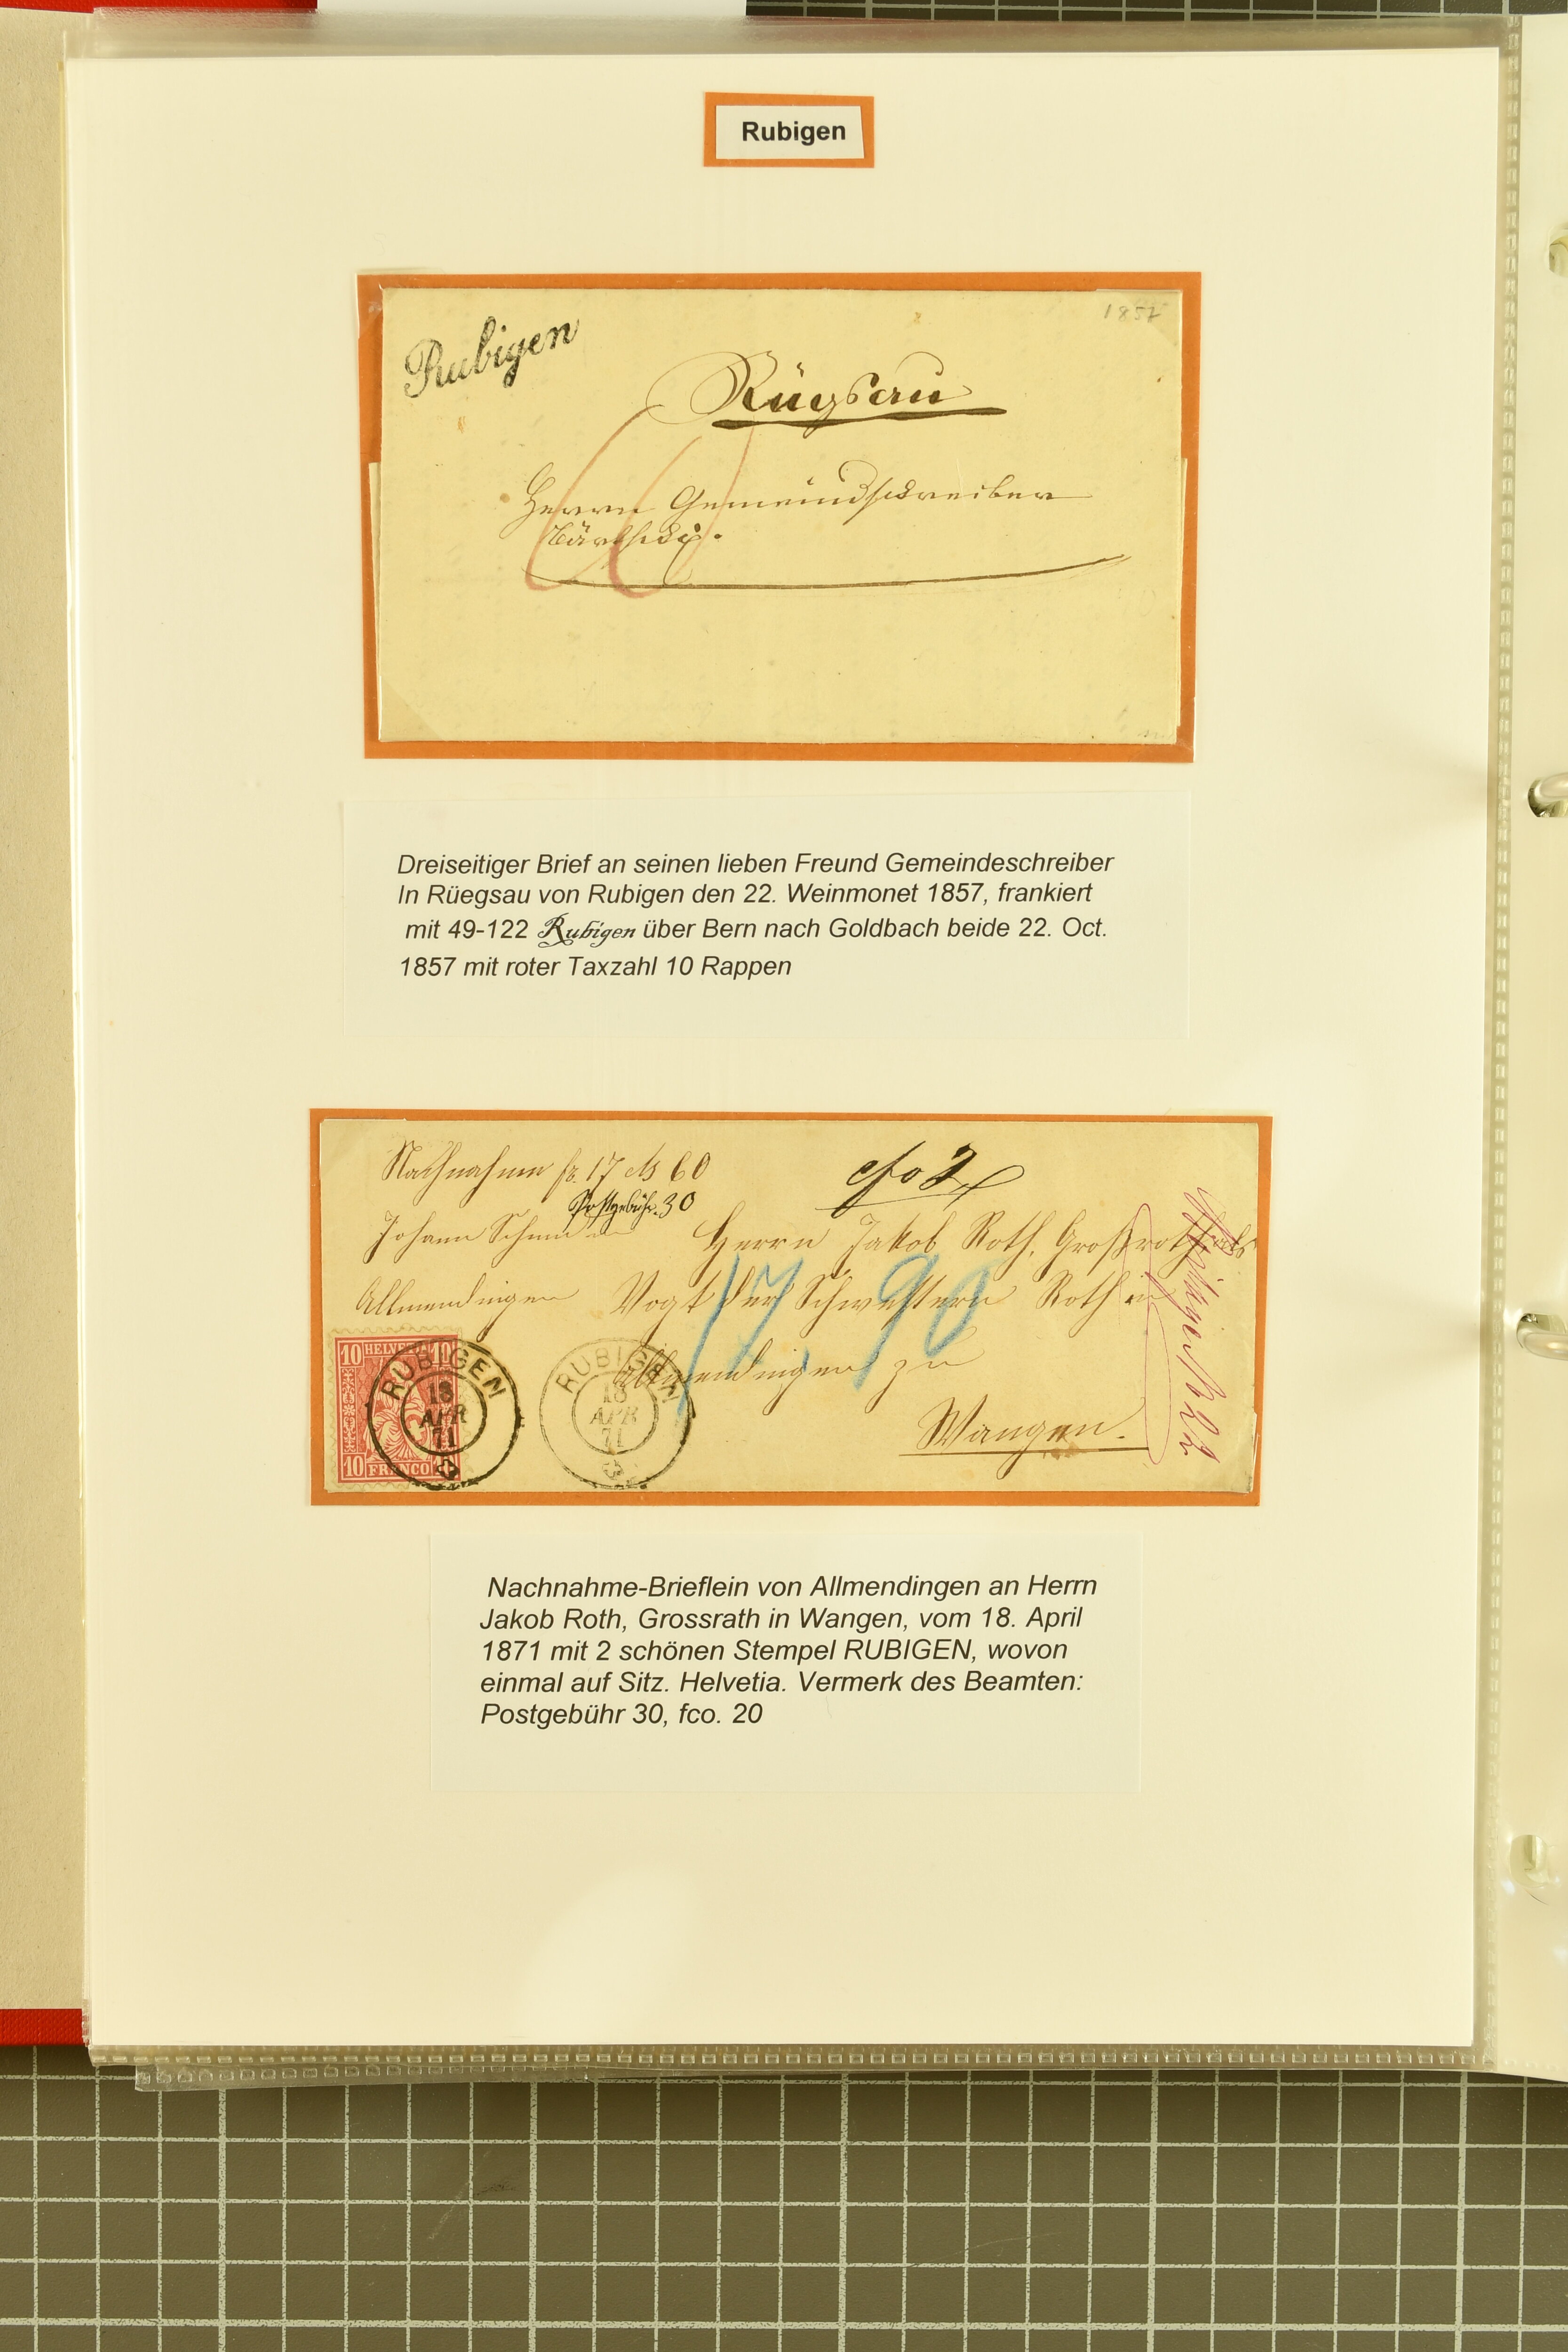 Rubigen
Rubigen
1857
Rügsau
Herrn Gemeindschreiber
Dreiseitiger Brief an seinen lieben Freund Gemeindeschreiber
In Rüegsau von Rubigen den 22. Weinmonet 1857, frankiert
mit 49-122 Rubigen über Bern nach Goldbach beide 22. Oct.
1857 mit roter Taxzahl 10 Rappen
Nachnahme fr. 17 cts 60
Postgebühr. 30
Johann
Herrn Jakob Roth, Großrath
Allmendingen
Vogt der Schwestern Roth in
17.90
Allmendingen zu
Wangen.
10 HELVETIA 10
10 FRANCO 10
RUBIGEN
18
APR
71
RUBIGEN
18
APR
71
Nachnahme-Brieflein von Allmendingen an Herrn
Jakob Roth, Grossrath in Wangen, vom 18. April
1871 mit 2 schönen Stempel RUBIGEN, wovon
einmal auf Sitz. Helvetia. Vermerk des Beamten:
Postgebühr 30, fco. 20